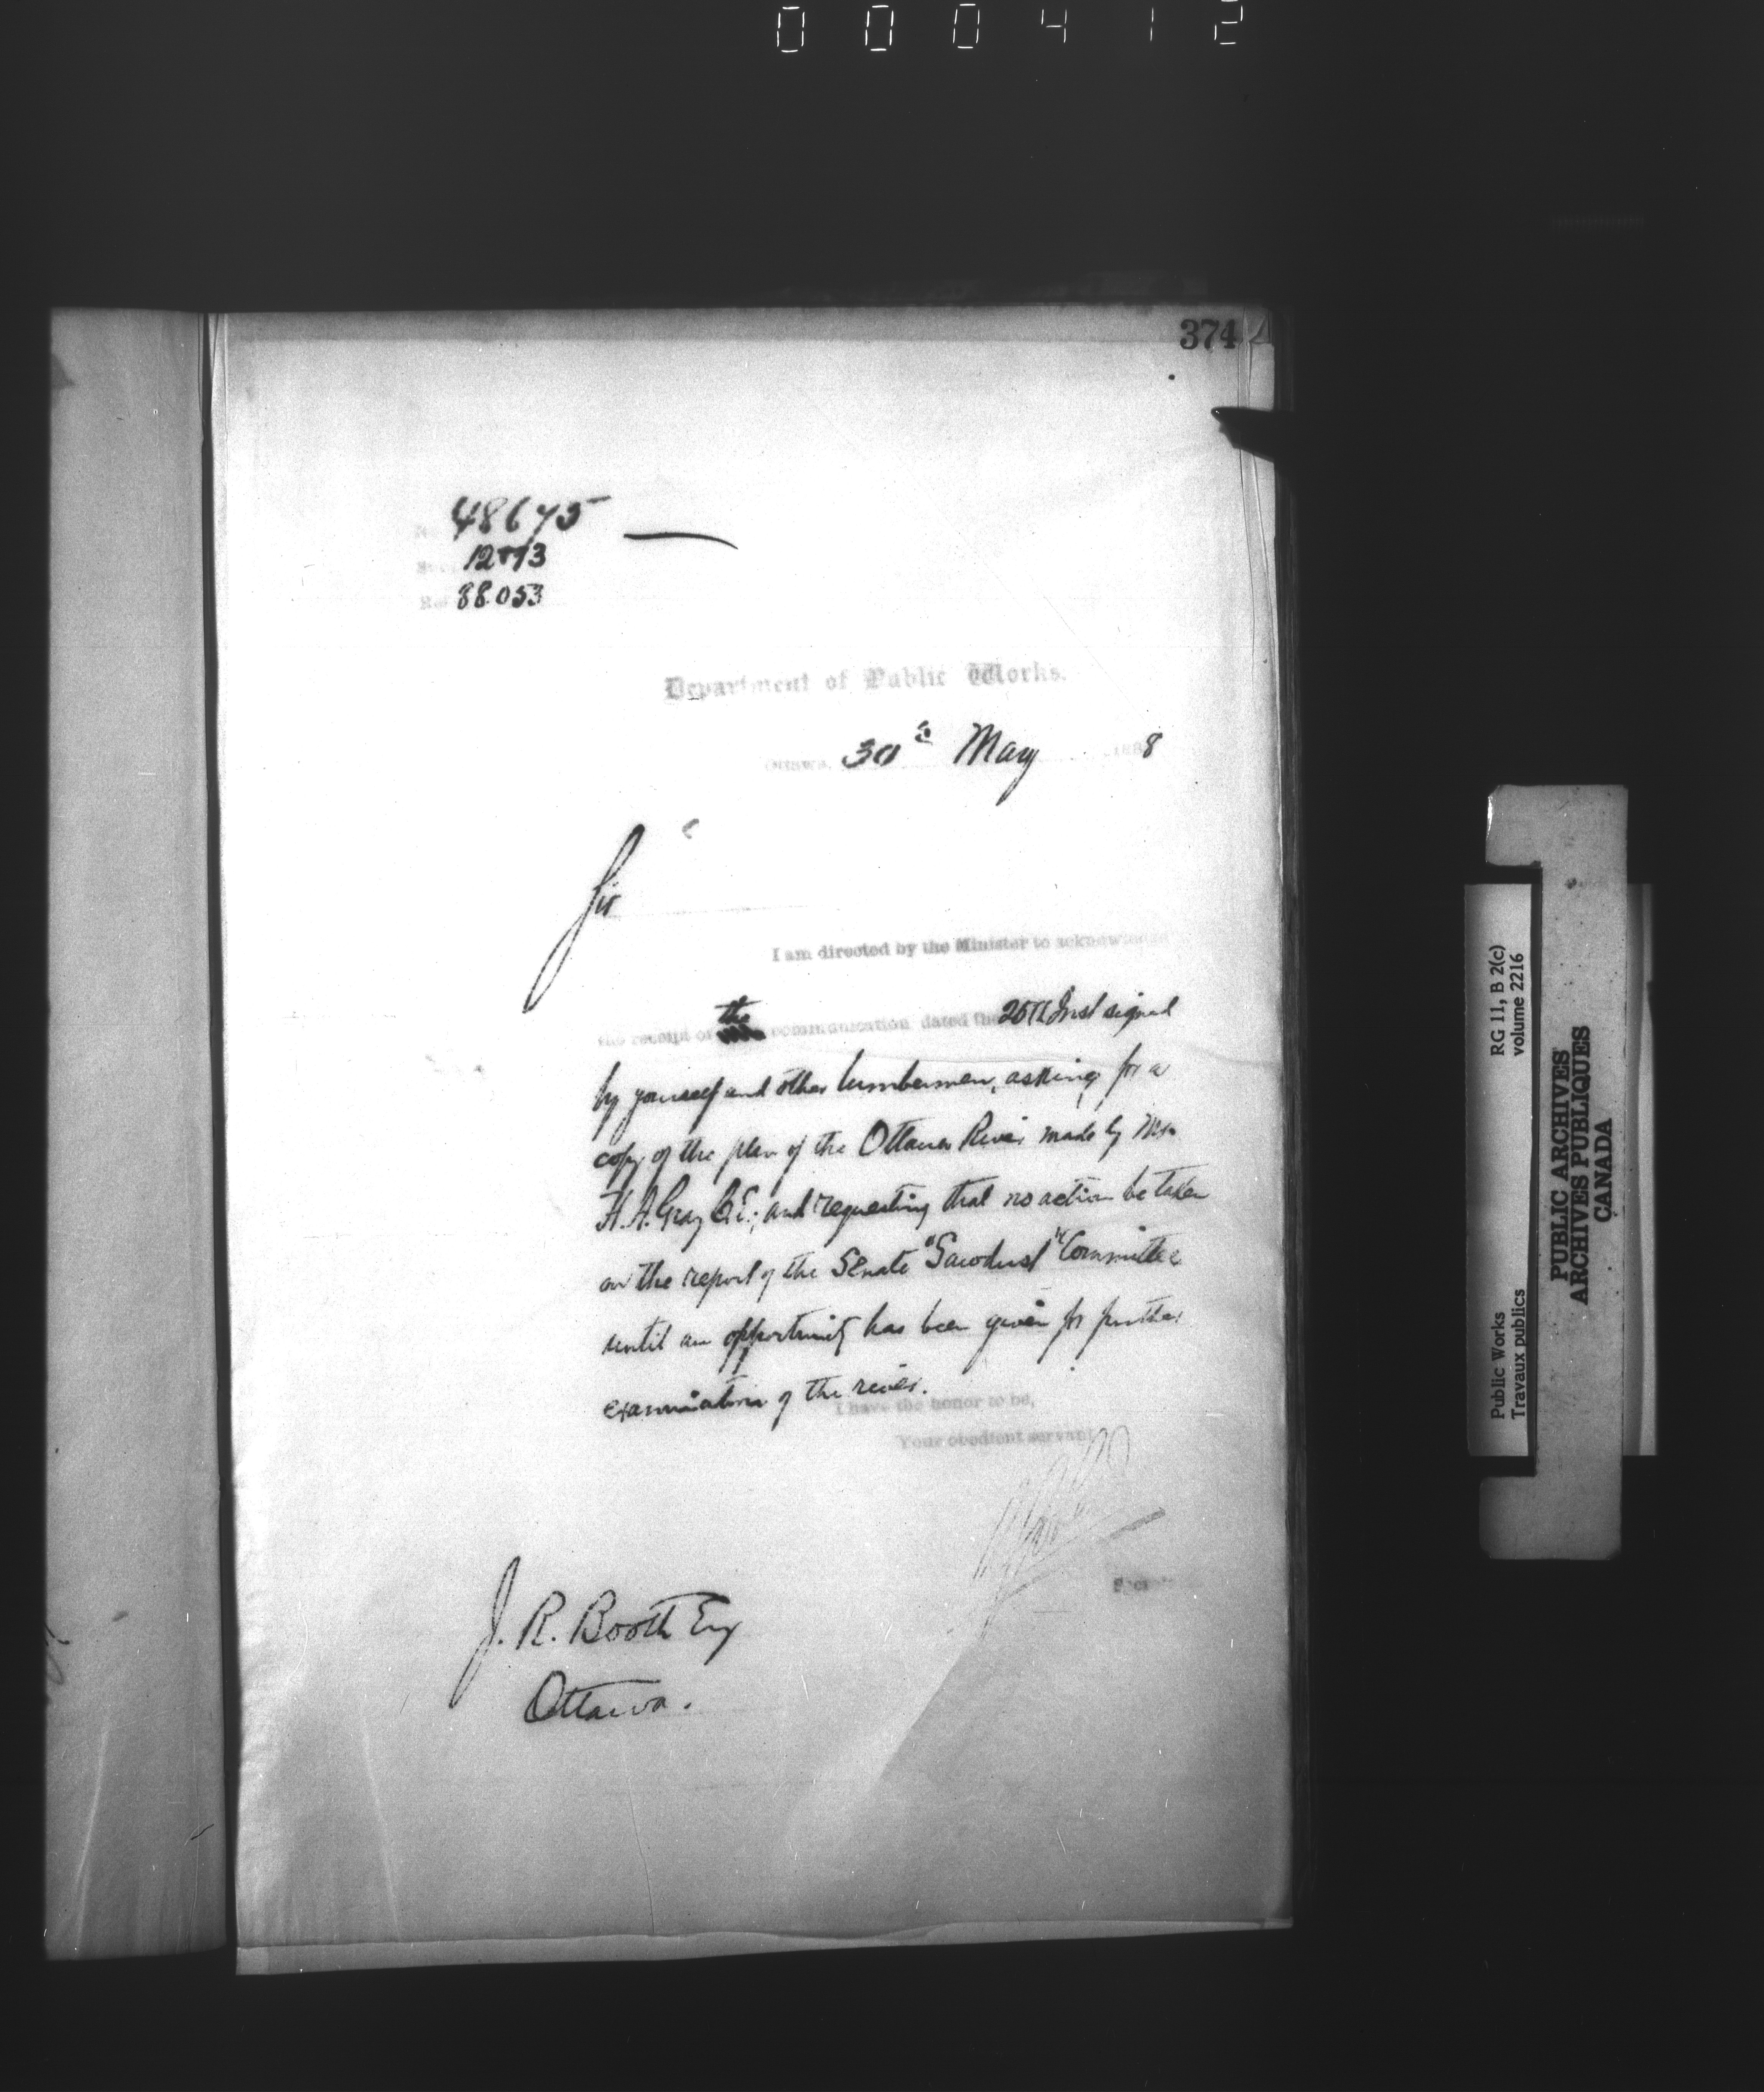 000412
374
No. 48675
12873
Ref. 88053
Department of Public Works.
Ottawa, 30th May 188 8
Sir
I am directed by the Minister to acknowledge
the receipt of the communication dated the 25th Inst signed
by yourself and other lumbermen, asking for a
copy of the plan of the Ottawa River made by Mr
H. A. Gray C.E.; and requesting that no action be taken
on the report of the Senate "Sawdust" Committee
until an opportunity has been given for further
examination of the river.
I have the honor to be,
Your obedient servant
J. R. Booth Esq
Ottawa.
Public Works RG 11, B 2(c)
Travaux publics volume 2216
PUBLIC ARCHIVES
ARCHIVES PUBLIQUES
CANADA